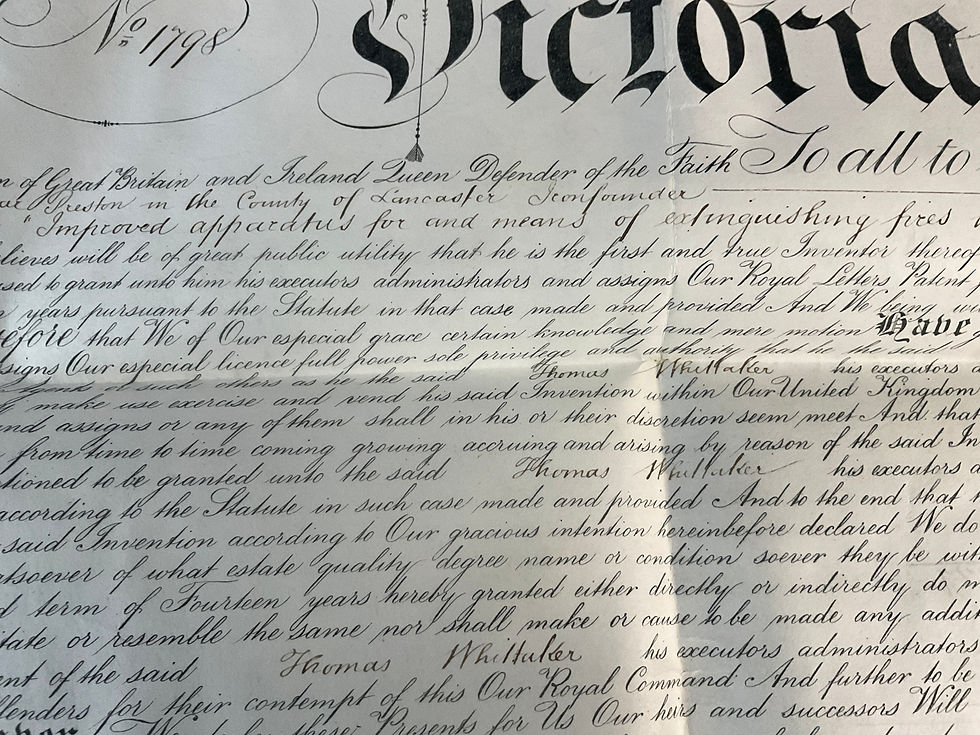 No 1798
Victoria
To all to
of Great Britain and Ireland Queen Defender of the Faith
Preston in the County of Lancaster Ironfounder
"Improved apparatus for and means of extinguishing fires
lieves will be of great public utility that he is the first and true Inventor thereof
sed to grant unto him his executors administrators and assigns Our Royal Letters Patent
years pursuant to the Statute in that case made and provided And We being
efore that We of Our especial grace certain knowledge and mere motion Have
signs Our especial licence full power sole privilege and authority that he the said
such others as he the said Thomas Whittaker his executors a
make use exercise and vend his said Invention within Our United Kingdom
nd assigns or any of them shall in his or their discretion seem meet And that
from time to time coming growing accruing and arising by reason of the said In
tioned to be granted unto the said Thomas Whittaker his executors a
according to the Statute in such case made and provided And to the end that
said Invention according to Our gracious intention hereinbefore declared We do
atsoever of what estate quality degree name or condition soever they be wit
d term of Fourteen years hereby granted either directly or indirectly do m
itate or resemble the same nor shall make or cause to be made any addi
ent of the said Thomas Whittaker his executors administrators
ffenders for their contempt of this Our Royal Command And further to be
by these Presents for Us Our heirs and successors Will